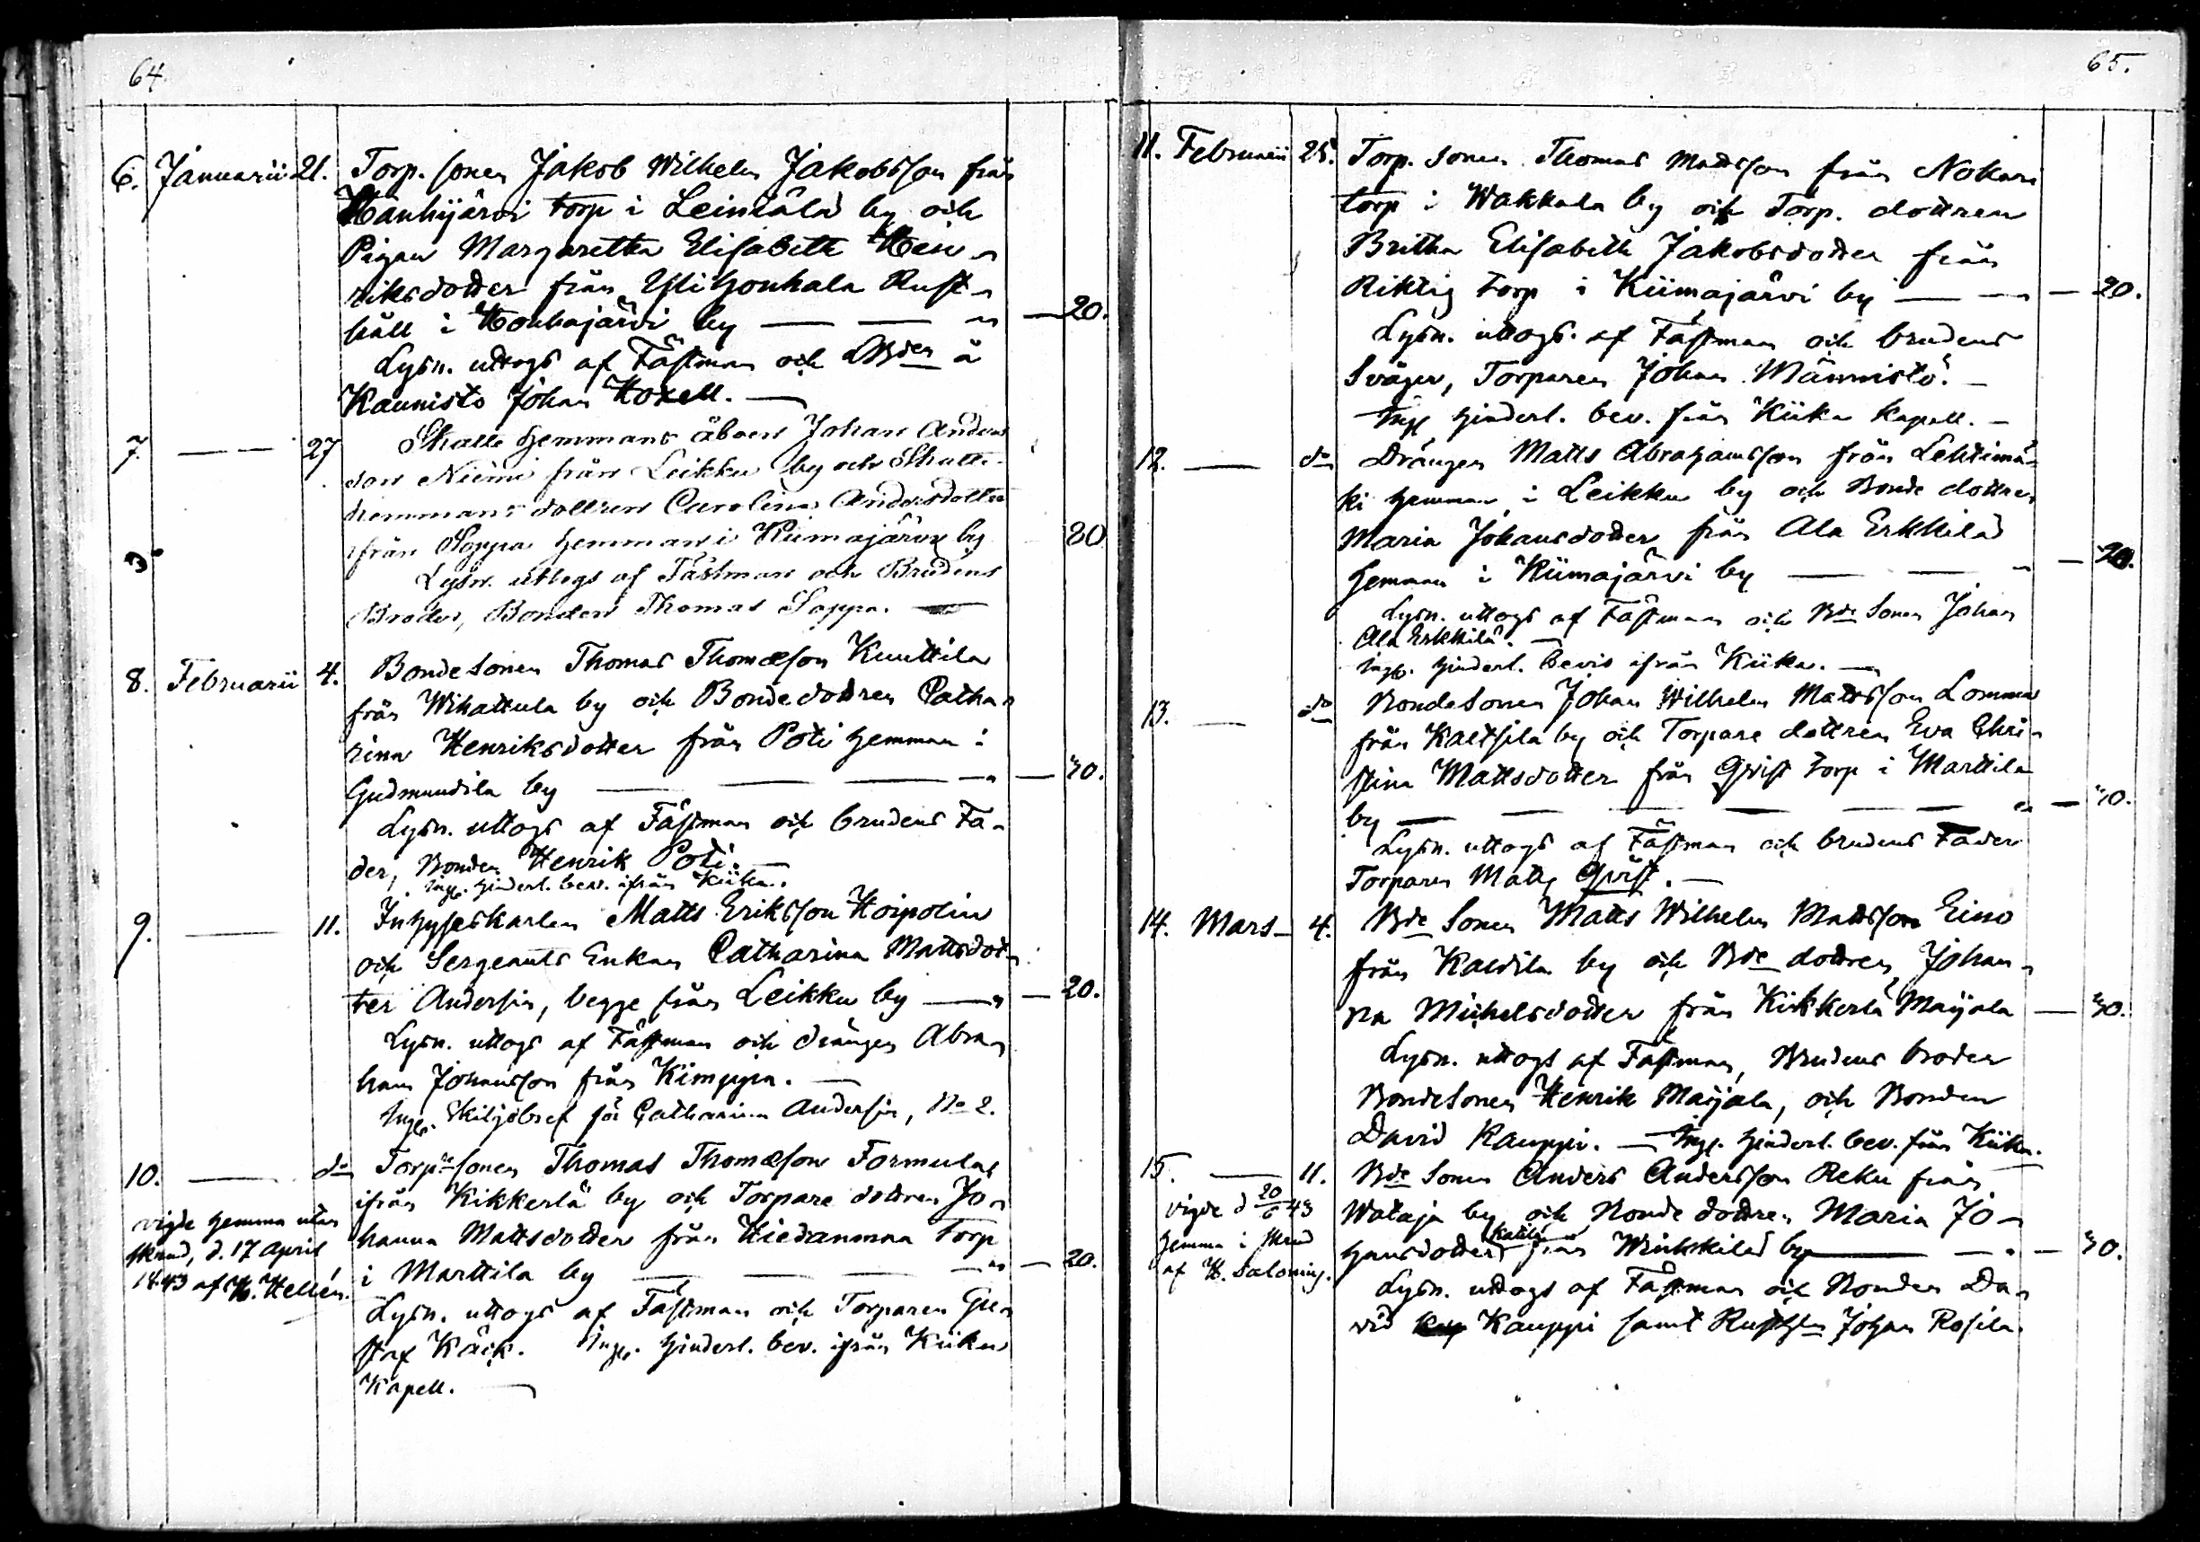 64.
6. Januarii 21. Torp. sonen Jakob Wilhelm Jakobsson från
Hanhijärvi torp i Leiniälä by och
Pigan Margaretha Elisabeth Hen-
riksdotter från Yli Honkala Rust-
håll i Houhajärvi by — — — 20.
Lysn. uttogs af Fästman och LBden å
Kaunisto Johan Koxell. —
7. — 27 Skatte hemmans åboen Johan Anders
son Niemi från Leikku by och Skatte
hemmans dottren Carolina Andersdotter
ifrån Soppa hemman i Kiimajärvi by 20
Lysn. uttogs af Fästman och Brudens
Broder, Bonden Thomas Soppa. —
8. Februarii 4. Bondesonen Thomas Thomæson Kuuttila
från Wihattula by och Bondedottren Catha-
rina Henriksdotter från Poti hemman i
Gudmundila by — — — 40.
Lysn. uttogs af Fästman och brudens Fa-
der, Bonden Henrik Poti. —
Ingb. hinderl. bev. ifrån Kiika.
9. — 11. Inhyseskarlen Matts Eriksson Koipolin
och Sergeants Enkan Catharina Mattsdot-
ter Andersin, begge från Leikku by — — 20.
Lysn. uttogs af Fästman och drängen Abra-
ham Johansson från Kimppa. —
Ingb. Skiljobref för Catharina Andersin, No 2.
10. — do Torpresonen Thomas Thomæson Formula
ifrån Kikkerlä by och Torpare dottren Jo-
hanna Mattsdotter från Hiedanmaa torp
i Marttila by — — — 20.
vigde hemma utan
skrud, d. 17 April
1843 af K. Hellén.
Lysn. uttogs af Fästman och Torparen Gu-
staf Käck. Ingb. hinderl. bev. ifrån Kiika
Kapell. —
65.
11. Februarii 25. Torp. sonen Thomas Mattsson från Nokari
torp i Wakkala by och Torp. dottren
Britha Elisabeth Jakobsdotter från
Riktig torp i Kiimajärvi by — — — 20.
Lysn. uttogs af Fästman och brudens
Svåger, Torparen Johan Männistö. —
Ingb. hinderl. bev. från Kiika kapell. —
12. — do Drängen Matts Abrahamsson från Lehtimä-
ki hemman i Leikku by och Bonde dottren
Maria Johansdotter från Ala Erkkilä
hemman i Kiimajärvi by — — — 20.
Lysn. uttogs af Fästman och Bde Sonen Johan
Ala Erkkilä. —
Ingb. hinderl. bevis ifrån Kiika. —
13. — do Bondesonen Johan Wilhelm Mattsson Lomma
från Kaltsila by och Torpare dottren Eva Chri-
stina Mattsdotter från Qvist torp i Marttila
by — — — — 40.
Lysn. uttogs af Fästman och brudens Fader
Torparen Matts Qvist. —
14. Mars — 4. Bde Sonen Matts Wilhelm Mattsson Eino
från Kaldila by och Bde dottren Johan-
na Michelsdotter från Kikkerlä Maijala — 40.
Lysn. uttogs af Fästman, Brudens broder
Bondesonen Henrik Maijala, och Bonden
David Kauppi. — Ingb. hinderl. bev. från Kiika.
15. — 11. Bde Sonen Anders Andersson Reku från
Wataja by och Bonde dottren Maria Jo-
hansdotter Kattila från Winkkilä by — — — 40.
vigde d 20/6 43
hemma i skrud
af K. Saloning.
Lysn. uttogs af Fästman och Bonden Da-
vid Kauppi samt Rusthln Johan Rosila.